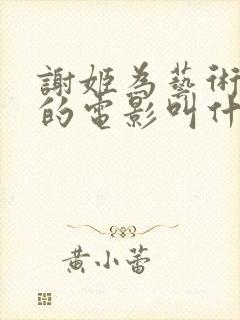 謝姬為藝術
的電影叫什
黄小蕾